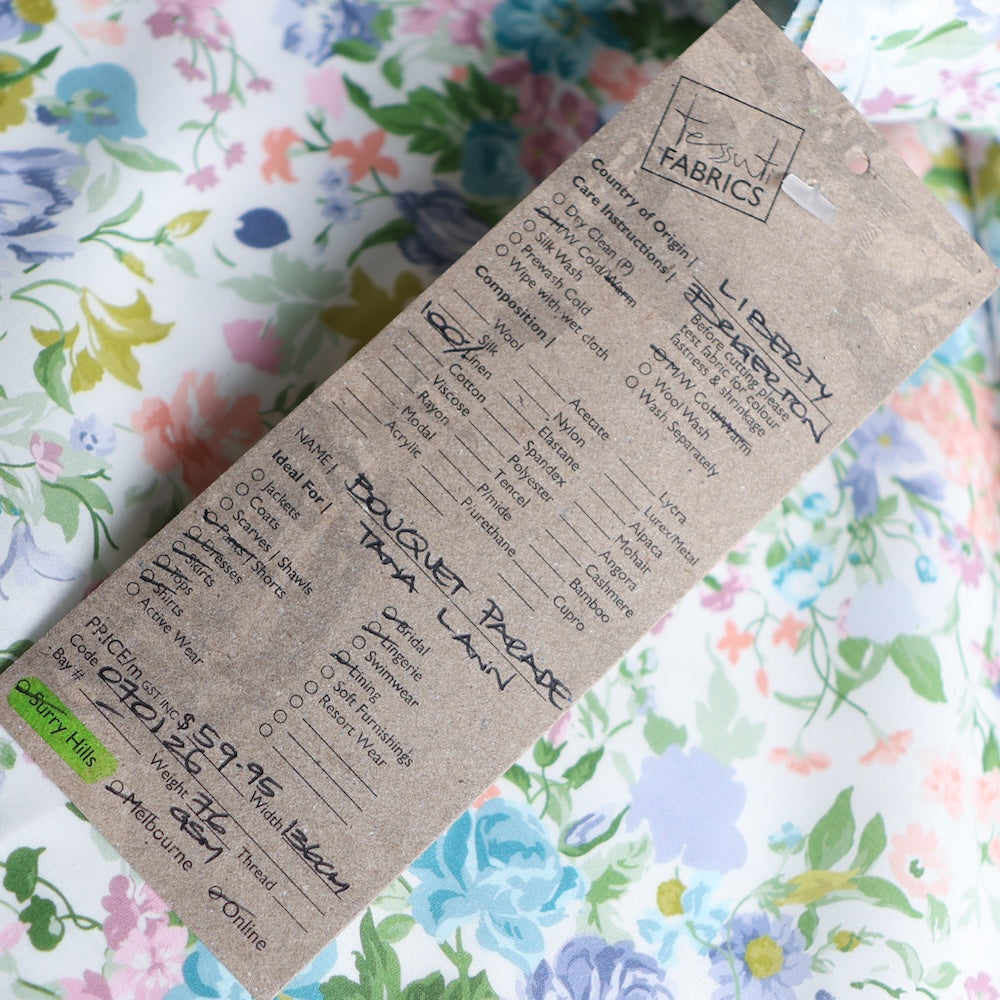 tessuti
FABRICS
Country of Origin | LIBERTY BERGERTON
Care Instructions |
Before cutting please
test fabric for colour
fastness & shrinkage
Dry Clean (P)
M/W Cold/Warm
Silk Wash
Prewash Cold
Wipe with wet cloth
M/W Cold/Warm
Wool Wash
Wash Separately
Composition |
Wool
Silk
Linen
100% Cotton
Viscose
Rayon
Modal
Acrylic
Acetate
Nylon
Elastane
Spandex
Polyester
Tencel
P/mide
P/urethane
Lycra
Lurex/Metal
Alpaca
Mohair
Angora
Cashmere
Bamboo
Cupro
NAME | BOUQUET PARADE
TANA LAWN
Ideal For |
Jackets
Coats
Scarves | Shawls
Pants | Shorts
Dresses
Skirts
Tops
Shirts
Active Wear
Bridal
Lingerie
Swimwear
Lining
Soft Furnishings
Resort Wear
PRICE/m GST INC $59.95 Width 136cm
Code 070126 Weight 76 GSM Thread
Bay #
Surry Hills
Melbourne
Online